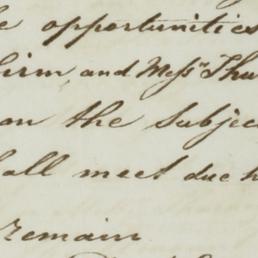 opportunities
him and Messrs Thu
on the subjec
all meet due h
remain